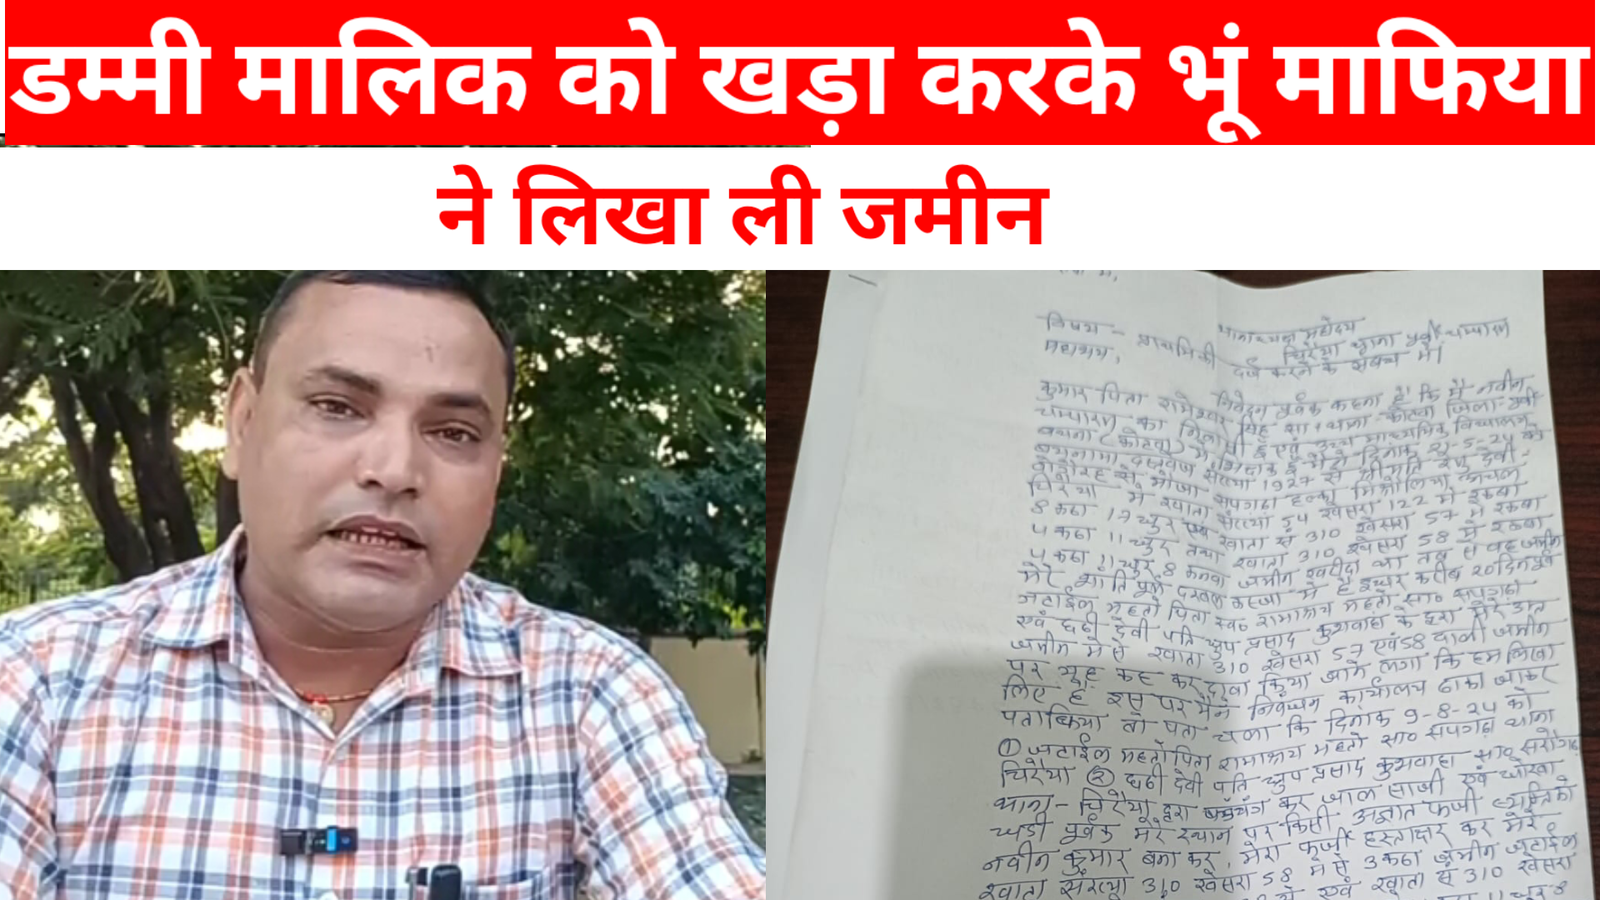 डम्मी मालिक को खड़ा करके भूं माफिया
ने लिखा ली जमीन
थानाध्यक्ष महोदय
चिरैया थाना पूर्वी चम्पारण
विषय - प्राथमिकी दर्ज करने के संबंध में।
महाशय,
निवेदन पूर्वक कहना है कि मैं नवीन
कुमार पिता रामेश्वर सिंह सा० थाना - कोटवा जिला - पूर्वी
चम्पारण का निवासी हूँ एवं उच्च माध्यमिक विद्यालय
में शिक्षक हूँ मैंने दिनांक 5-24 को
दस्तावेज संख्या 1927 से श्रीमति देवी
मौजा सपगढ़ा हल्का अंचल
चिरैया में खाता संख्या 54 खेसरा 122 में रकबा
8 कठा 17 धुर एवं खाता सं 310 खेसरा 57 में रकबा
4 कठा 11 धुर तथा खाता 310 खेसरा 58 में रकबा
4 कठा 11 धुर 8 कनवा जमीन खरीदा था तब से वह जमीन
मेरे शांति पूर्ण दखल कब्जा में है इधर करीब 20 दिन पूर्व
जटाईल महतो पिता स्व० रामाश्रय महतो सा० सपगढ़ा
एवं देवी पति प्रसाद कुशवाहा के द्वारा मेरे उक्त
जमीन में से खाता 310 खेसरा 57 एवं 58 वाली जमीन
पर यह कह कर दावा किया जाने लगा कि हम लिखा
लिए हैं इस पर मैंने निबंधन कार्यालय ढाका जाकर
पता किया तो पता चला कि दिनांक 9-8-24 को
① जटाईल महतो पिता रामाश्रय महतो सा० सपगढ़ा थाना
चिरैया ② देवी पति प्रसाद कुशवाहा सा०
थाना - चिरैया द्वारा कर जाल साजी एवं धोखा
धडी पूर्वक मेरे स्थान पर किसी अज्ञात फर्जी व्यक्ति को
नवीन कुमार बना कर, मेरा फर्जी हस्ताक्षर कर मेरे
खाता संख्या 310 खेसरा 58 में से 3 कठा जमीन जटाईल
एवं खाता सं 310 खेसरा